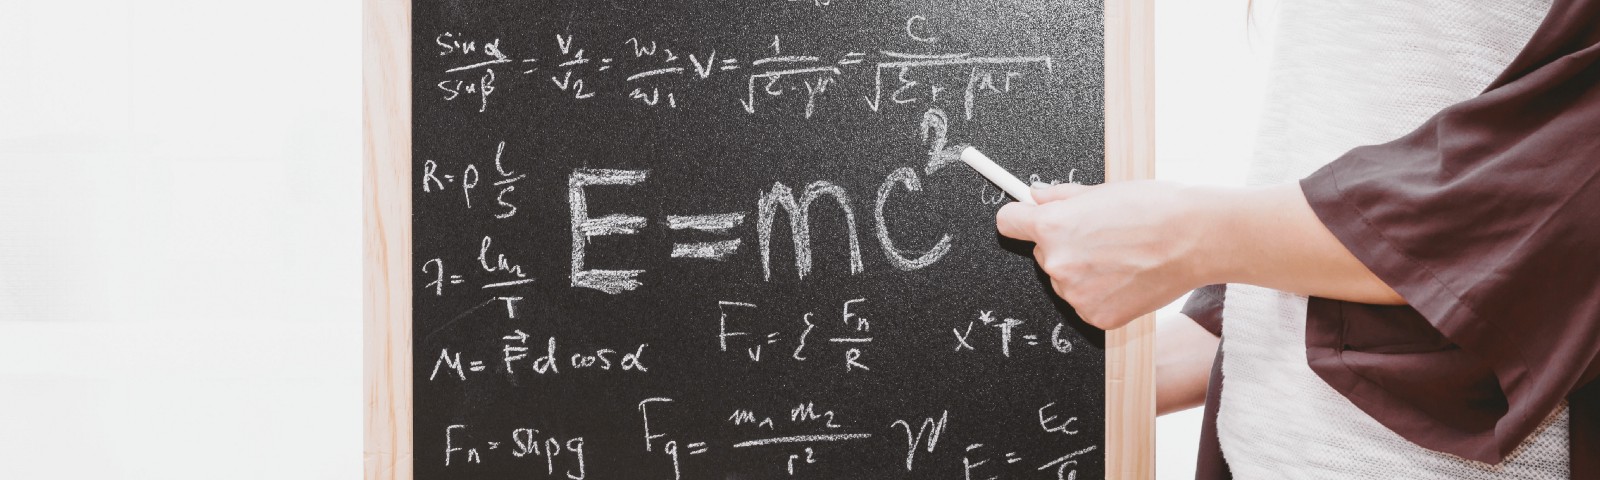 sin α / sin β = v₁ / v₂ = w₂ / w₁ V = 1 / √ε·μ = C / √εr μr
R = ρ l / S
E = mc²
λ = ln2 / T
Fᵥ = { Fn / R
x*T = 6
M = F⃗ d cos α
Fn = Shpg
Fg = m₁ m₂ / r²
Ec